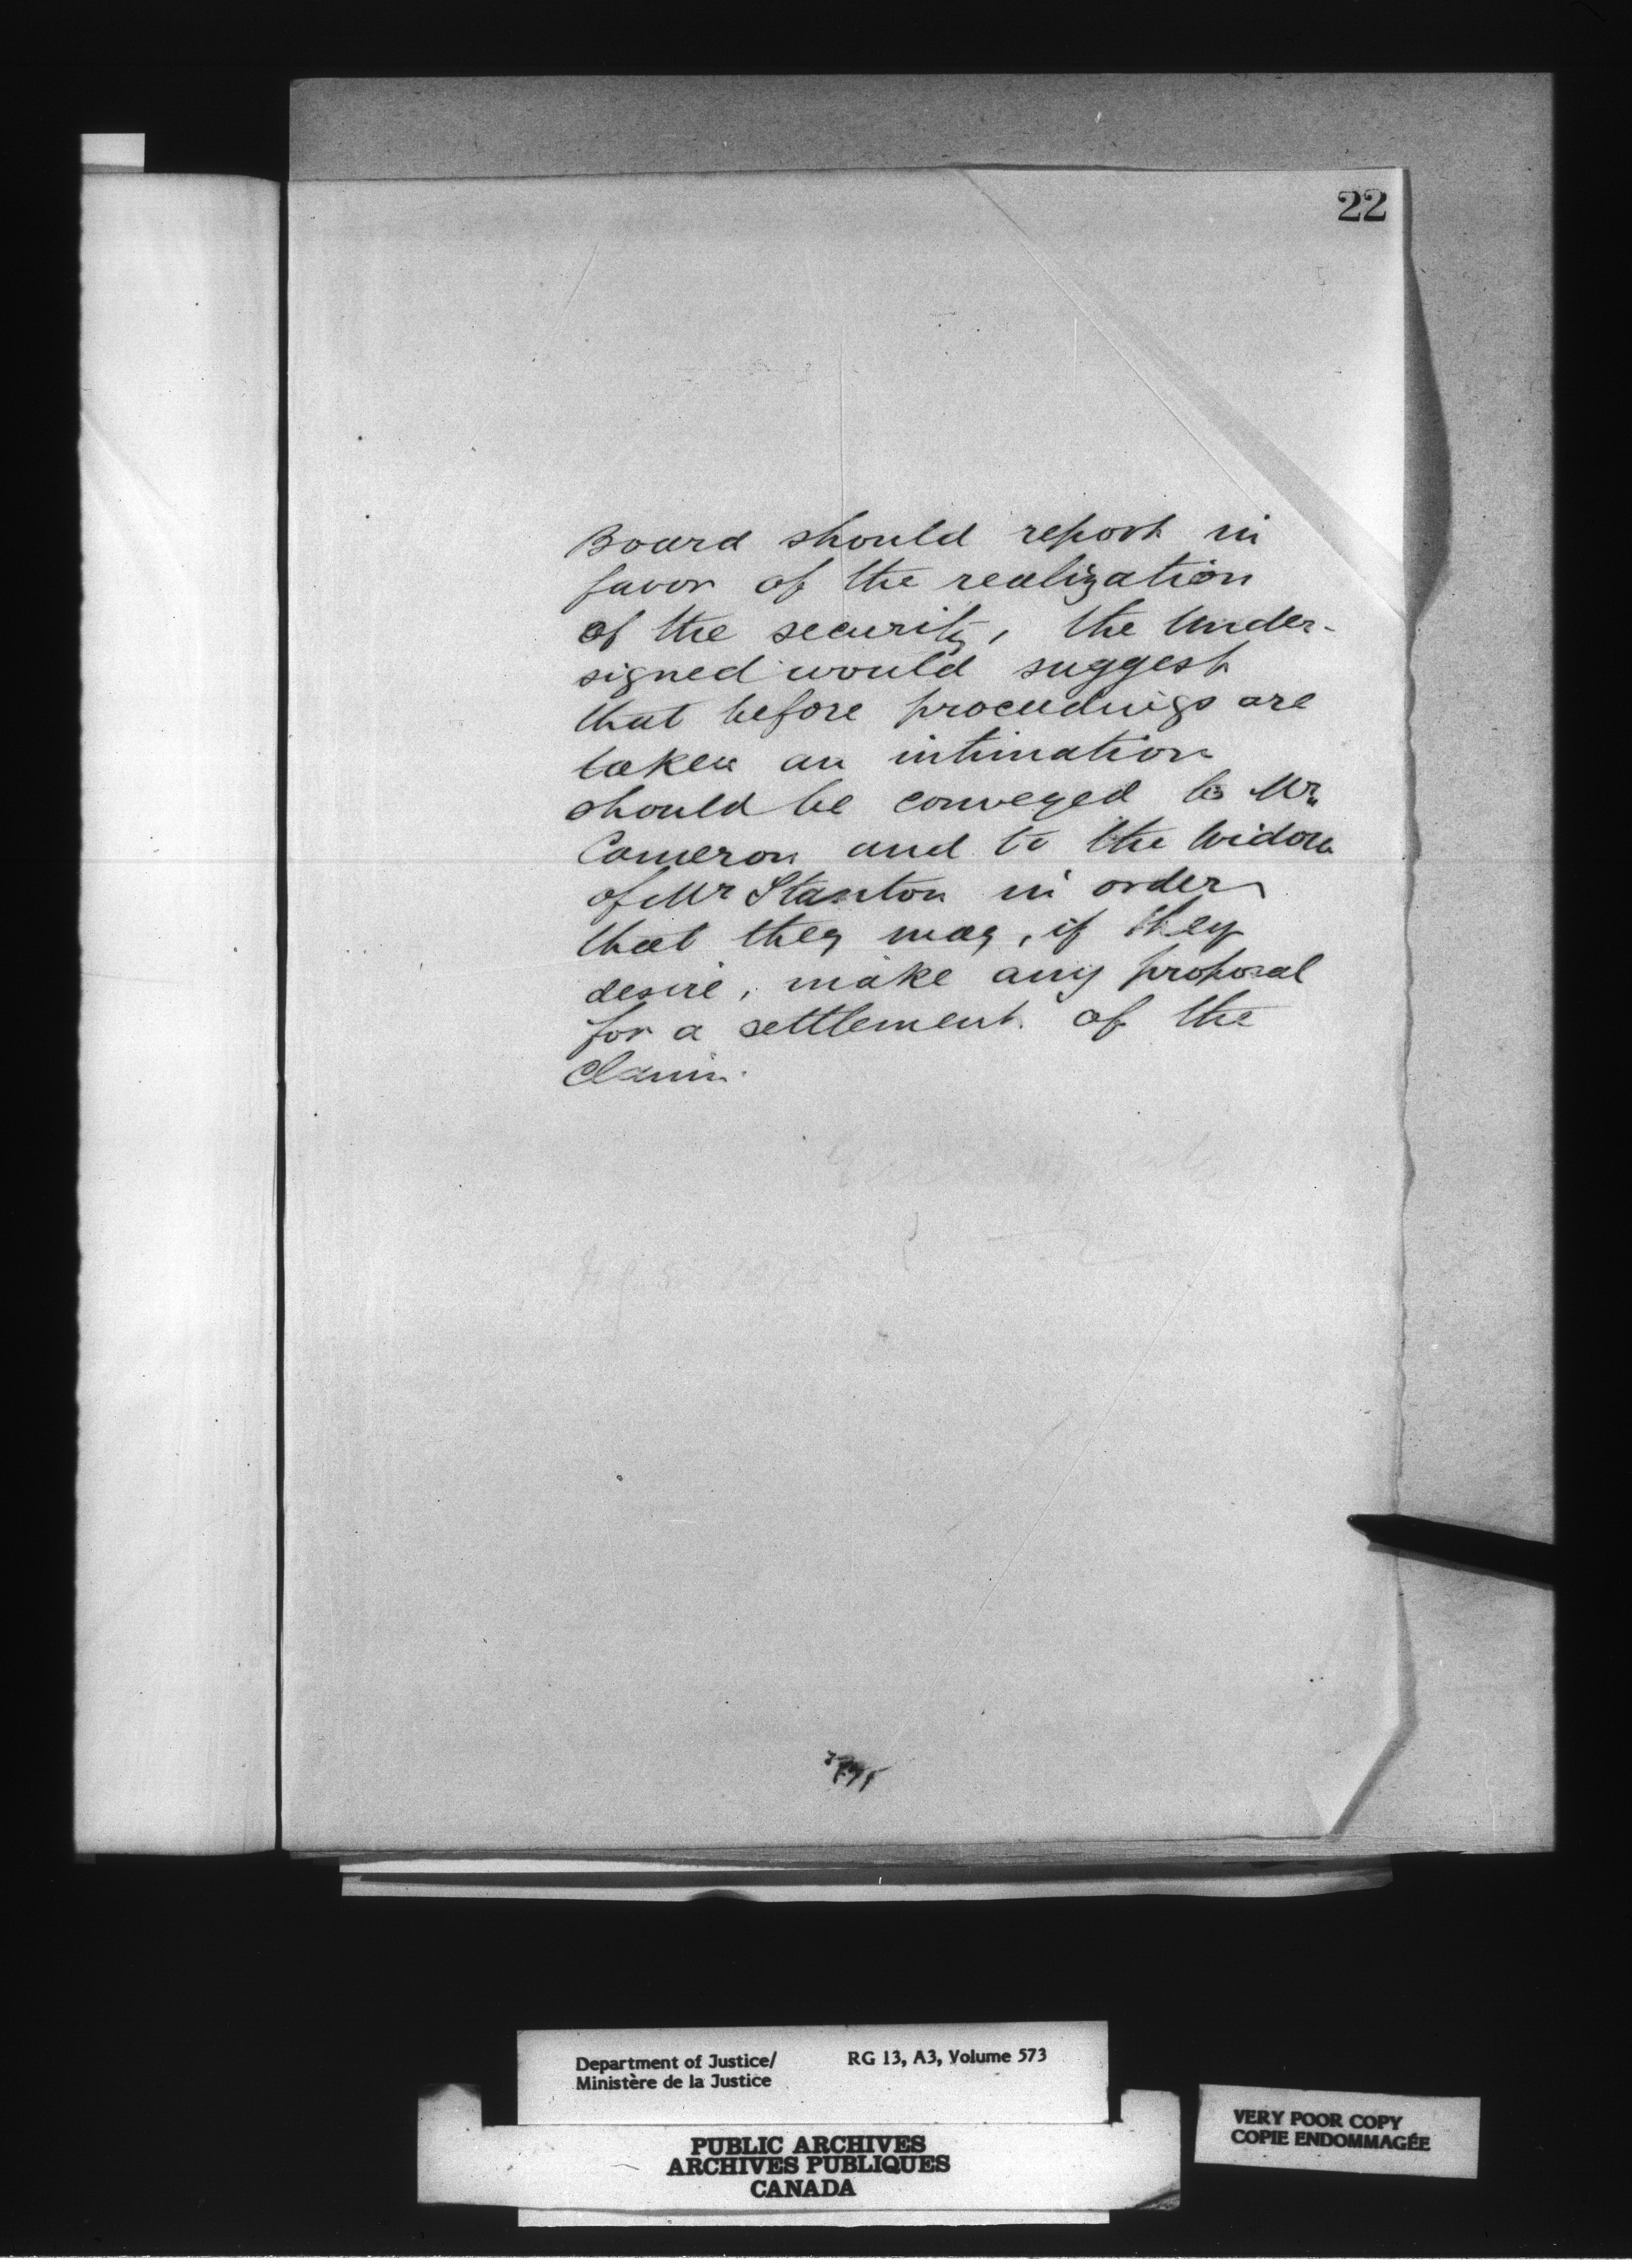 22
Board should report in
favor of the realization
of the security, the Under-
signed would suggest
that before proceedings are
taken an intimation
should be conveyed to Mr
Cameron and to the Widow
of Mr Stanton in order
that they may, if they
desire, make any proposal
for a settlement of the
Claim.
Department of Justice/
Ministère de la Justice
RG 13, A3, Volume 573
PUBLIC ARCHIVES
ARCHIVES PUBLIQUES
CANADA
VERY POOR COPY
COPIE ENDOMMAGÉE